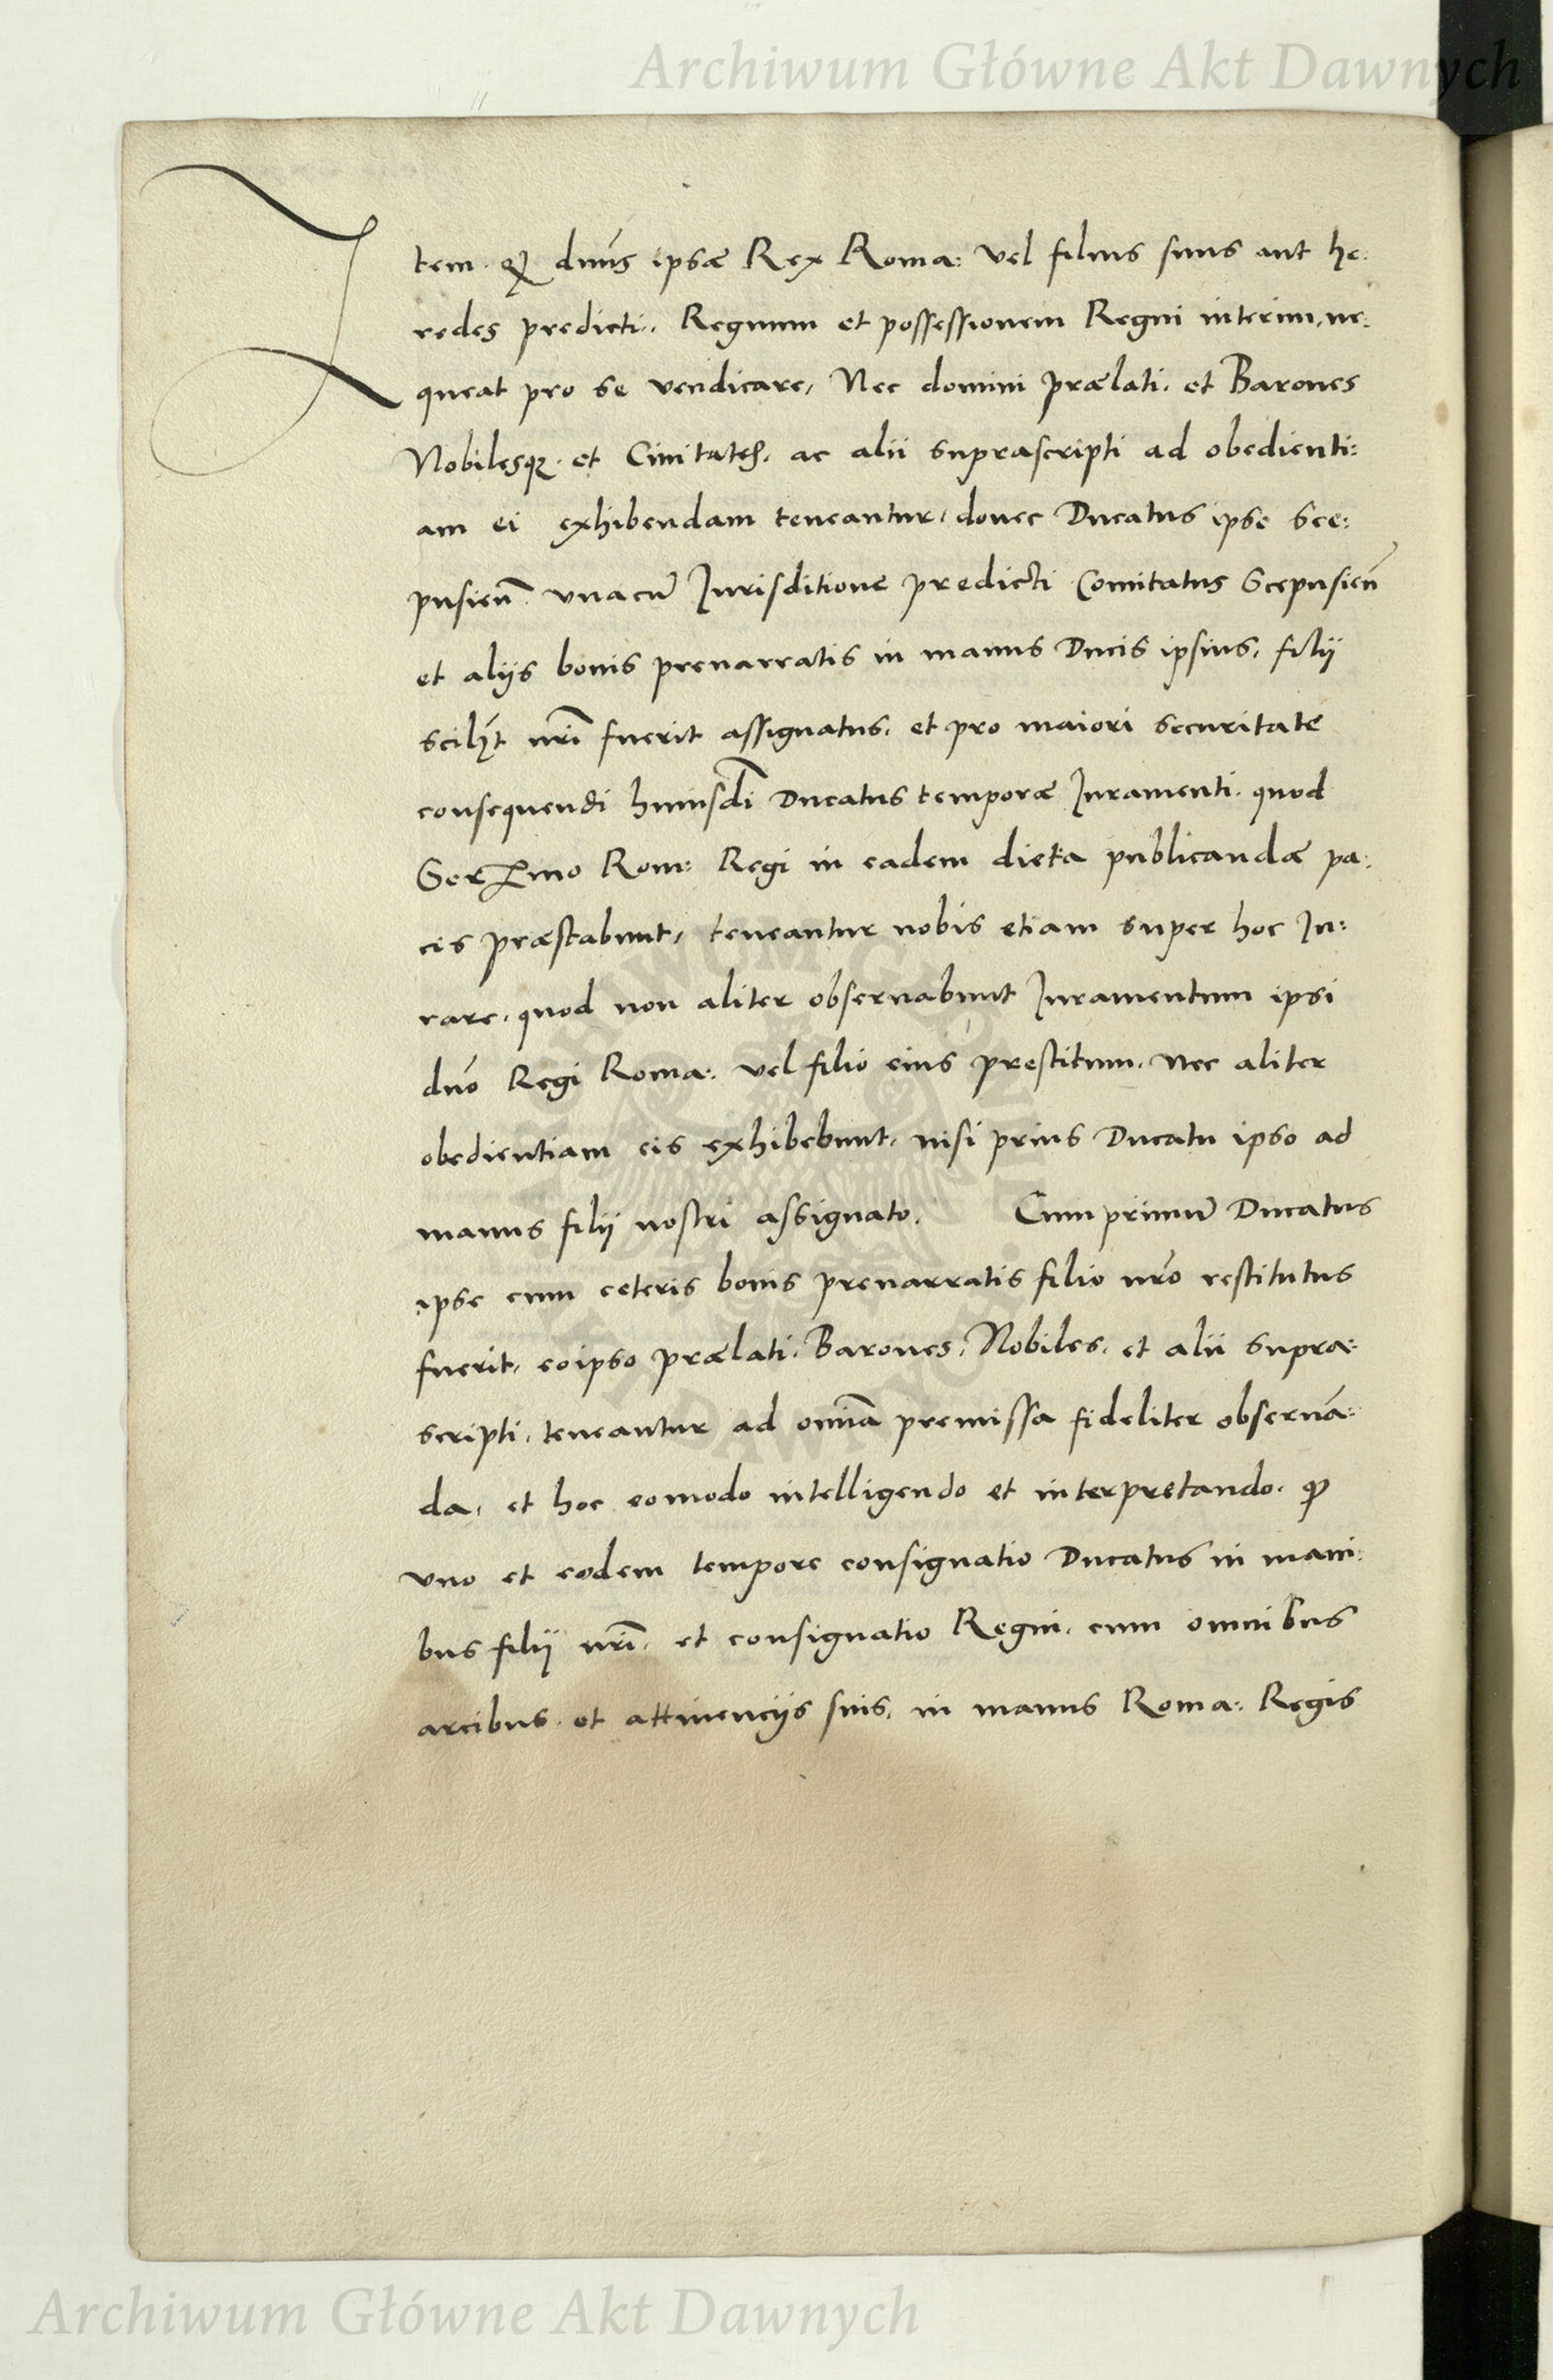 Archiwum Główne Akt Dawnych
Item. Qđ dnūs ipsæ Rex Roma: vel filius suus aut he:
redes predicti. Regnum et possessionem Regni interim, ne:
queat pro se vendicare, Nec domini prælati. et Barones
Nobilesqz. et Ciuitates. ac alii suprascripti ad obedienti:
am ei exhibendam teneantur, donec Ducatus ipse Sce:
pusien̄. vnacū Jurisditione predicti Comitatus Scepusien̄
et aliis bonis prenarratis in manus Ducis ipsius, filii
scilꝫt nr̄i fuerit assignatus, et pro maiori securitate
consequendi huiusdi ̄ Ducatus temporæ Juramenti. quod
Serᵐmo Rom: Regi in eadem dieta publicandæ pa:
cis præstabunt, teneantur nobis etiam super hoc Ju:
rare, quod non aliter obseruabunt Juramentum ipsi
dn̄o Regi Roma: vel filio eius prestitum, nec aliter
obedientiam eis exhibebunt, nisi prius Ducatu ipso ad
manus filii nostri assignato. Cum primū Ducatus
ipse cum ceteris bonis prenarratis filio nr̄o restitutus
fuerit, eoipso prælati. Barones, Nobiles, et alii supra:
scripti, teneantur ad omīa premissa fideliter obseruā:
da, et hoc eomodo intelligendo et interpretando. ꝙ
vno et eodem tempore consignatio Ducatus in mani:
bus filii nr̄i, et consignatio Regni, cum omnibus
arcibus. et attinenciis suis, in manus Roma: Regis
Archiwum Główne Akt Dawnych